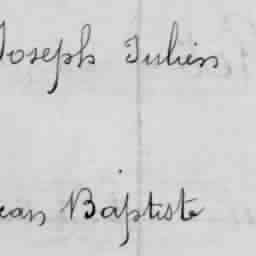 Joseph Julien
ean Baptiste